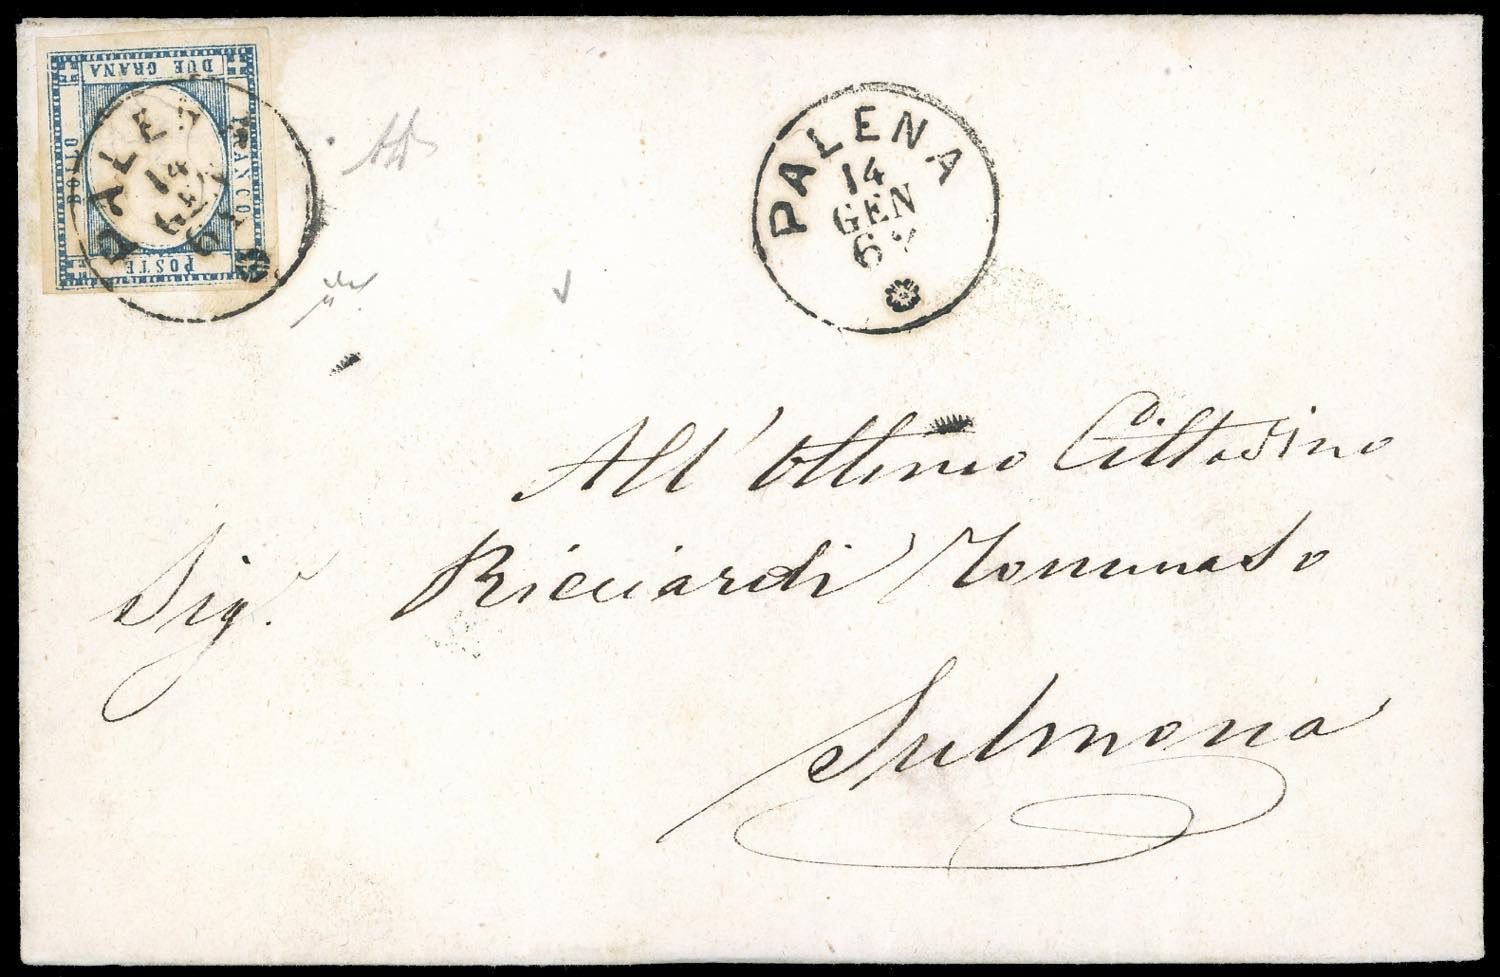 DUE GRANA
FRANCO
BOLLO
POSTE
PALENA
14
GEN
6
PALENA
14
GEN
62
All'Ottimo Cittadino
Sigr. Ricciardi Tommaso
Sulmona